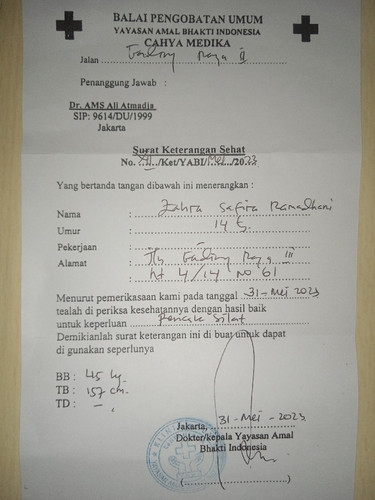 BALAI PENGOBATAN UMUM
YAYASAN AMAL BHAKTI INDONESIA
CAHYA MEDIKA
Jalan : Gading Raya II
Penanggung Jawab :
Dr. AMS Ali Atmadja
SIP: 9614/DU/1999
Jakarta
Surat Keterangan Sehat
No. /Ket/YABI/Mei/2023
Yang bertanda tangan dibawah ini menerangkan :
Nama : Zahra Safira Ramadhani
Umur : 14 t
Pekerjaan : -
Alamat : Jln Gading Raya III
Rt 4/14 No 61
Menurut pemerikasaan kami pada tanggal 31-Mei 2023
tealah di periksa kesehatannya dengan hasil baik
untuk keperluan : Pencak Silat
Demikianlah surat keterangan ini di buat untuk dapat
di gunakan seperlunya
BB : 45 kg.
TB : 157 cm.
TD : -
Jakarta, 31-Mei-2023
Dokter/kepala Yayasan Amal
Bhakti Indonesia
(....................)